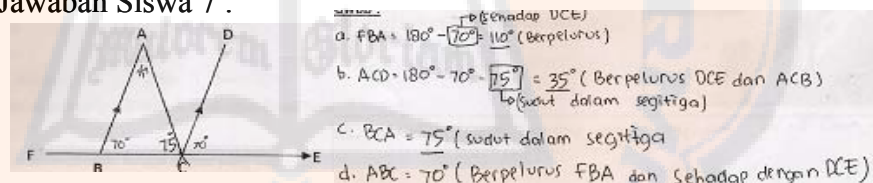 Jawaban Siswa 7 :
A
D
70°
75°
70°
F
B
C
E
(sehadap DCE)
a. FBA = 180° - 70° = 110° (Berpelurus)
b. ACD = 180° - 70° - 75° = 35° (Berpelurus DCE dan ACB)
(sudut dalam segitiga)
c. BCA = 75° (sudut dalam segitiga
d. ABC = 70° (Berpelurus FBA dan Sehadap dengan DCE)